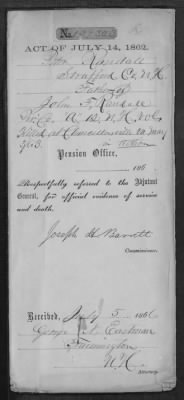 No.
ACT OF JULY 14, 1862.
John Randall
Strafford Co. N.H.
Father of
John F. Randall
Pri. Co. A 12, N.H. Vols
Killed at Chancellorsville Va May
Pension Office,
186
Respectfully referred to the Adjutant
General, for official evidence of service
and death.
Joseph H Barrett
Commissioner.
Received, July 5 186
George N. Eastman
Farmington
N.H.
Attorney.